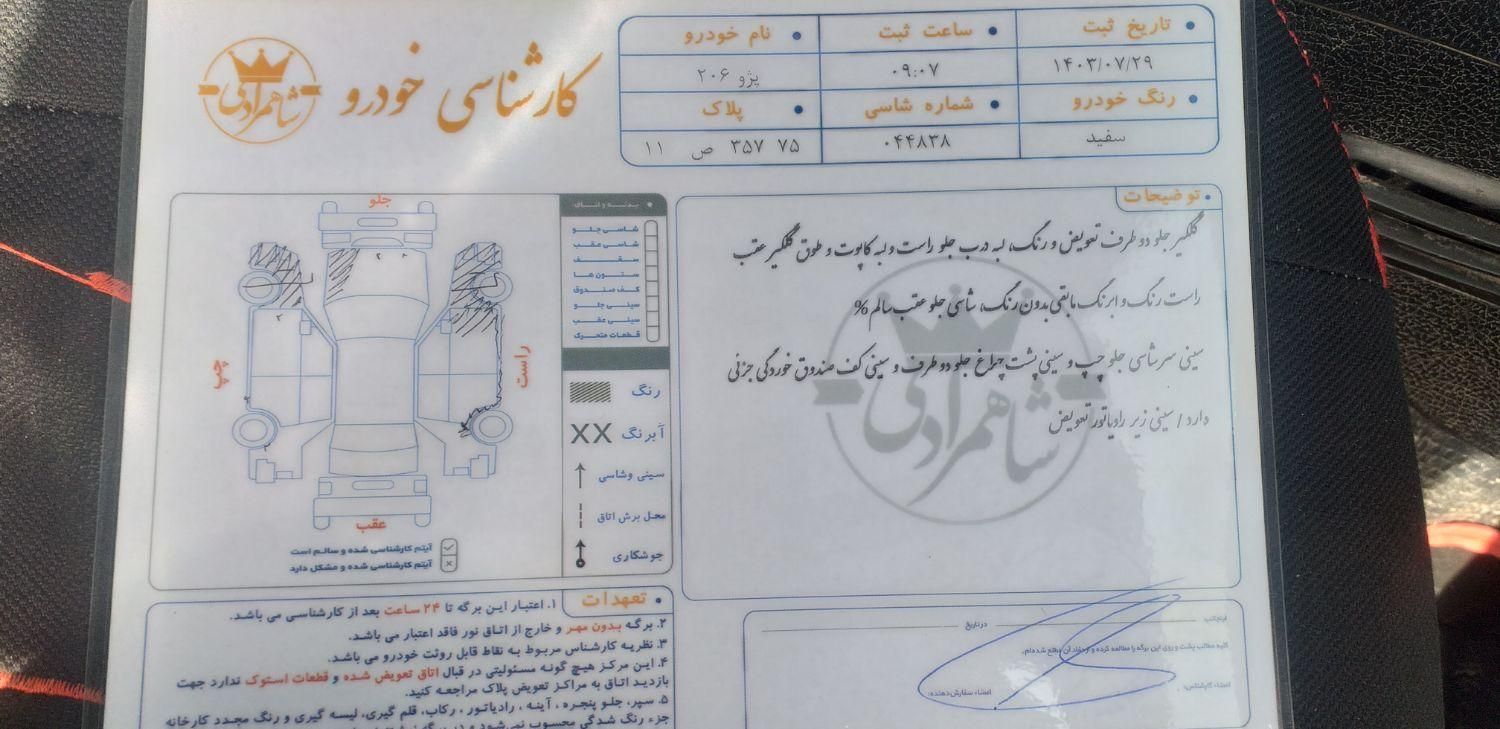 شاهمرادی
کارشناسی خودرو
تاریخ ثبت
ساعت ثبت
نام خودرو
۱۴۰۳/۰۷/۲۹
۰۹:۰۷
پژو ۲۰۶
رنگ خودرو
شماره شاسی
پلاک
سفید
۰۴۴۸۳۸
۱۱ ص ۳۵۷ ۷۵
توضیحات
گلگیر جلو دو طرف تعویض و رنگ، لبه درب جلو راست و لبه کاپوت و طوق گلگیر عقب
راست رنگ و ابرنگ مابقی بدون رنگ، شاسی جلو عقب سالم %
سینی سرشاسی جلو چپ و سینی پشت چراغ جلو دو طرف و سینی کف صندوق خوردگی جزئی
دارد / سینی زیر رادیاتور تعویض
شاهمرادی
بدنه و اتاق
شاسی جلو
شاسی عقب
سقف
ستون ها
کف صندوق
سینی جلو
سینی عقب
قطعات متحرک
رنگ
XX آبرنگ
سینی وشاسی
محل برش اتاق
جوشکاری
جلو
چپ
راست
عقب
آیتم کارشناسی شده و سالم است
آیتم کارشناسی شده و مشکل دارد
تعهدات
۱. اعتبار این برگه تا ۲۴ ساعت بعد از کارشناسی می باشد.
۲. برگه بدون مهر و خارج از اتاق نور فاقد اعتبار می باشد.
۳. نظریه کارشناس مربوط به نقاط قابل روئت خودرو می باشد.
۴. این مرکز هیچ گونه مسئولیتی در قبال اتاق تعویض شده و قطعات استوک ندارد جهت
بازدید اتاق به مراکز تعویض پلاک مراجعه کنید.
۵. سپر، جلو پنجره، آینه، رادیاتور، رکاب، قلم گیری، لیسه گیری و رنگ مجدد کارخانه
جزء رنگ شدگی محسوب نمی‌شود
اینجانب
در تاریخ
کلیه مطالب پشت و روی این برگه را مطالعه کرده و از مفاد آن مطلع شده‌ام.
امضاء کارشناس:
امضاء سفارش‌دهنده: